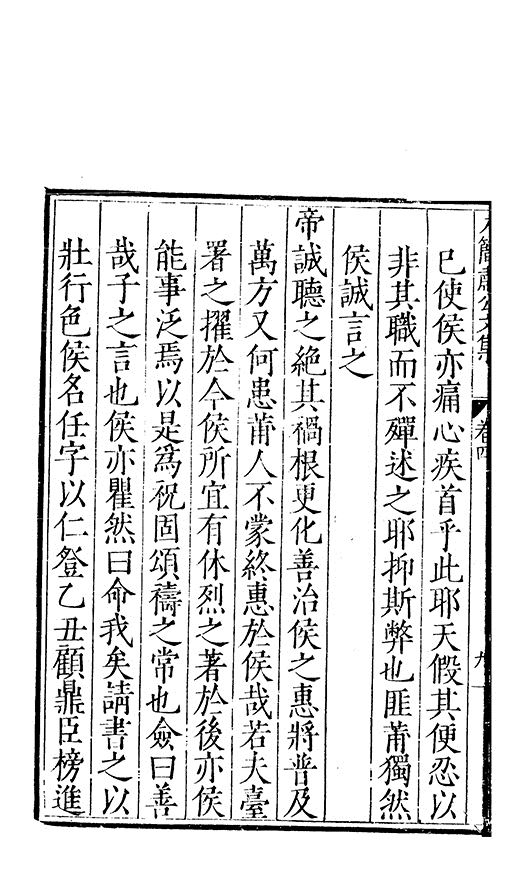 簡肅公文集
卷四
九
已使侯亦痛心疾首乎此耶天假其便忍以
非其職而不殫述之耶抑斯弊也匪莆獨然
侯誠言之
帝誠聽之絕其禍根更化善治侯之惠將普及
萬方又何患莆人不蒙終惠於侯哉若夫臺
署之擢於今侯所宜有休烈之著於後亦侯
能事泛焉以是爲祝固頌禱之常也僉曰善
哉子之言也侯亦瞿然曰命我矣請書之以
壯行色侯名任字以仁登乙丑顧鼎臣榜進